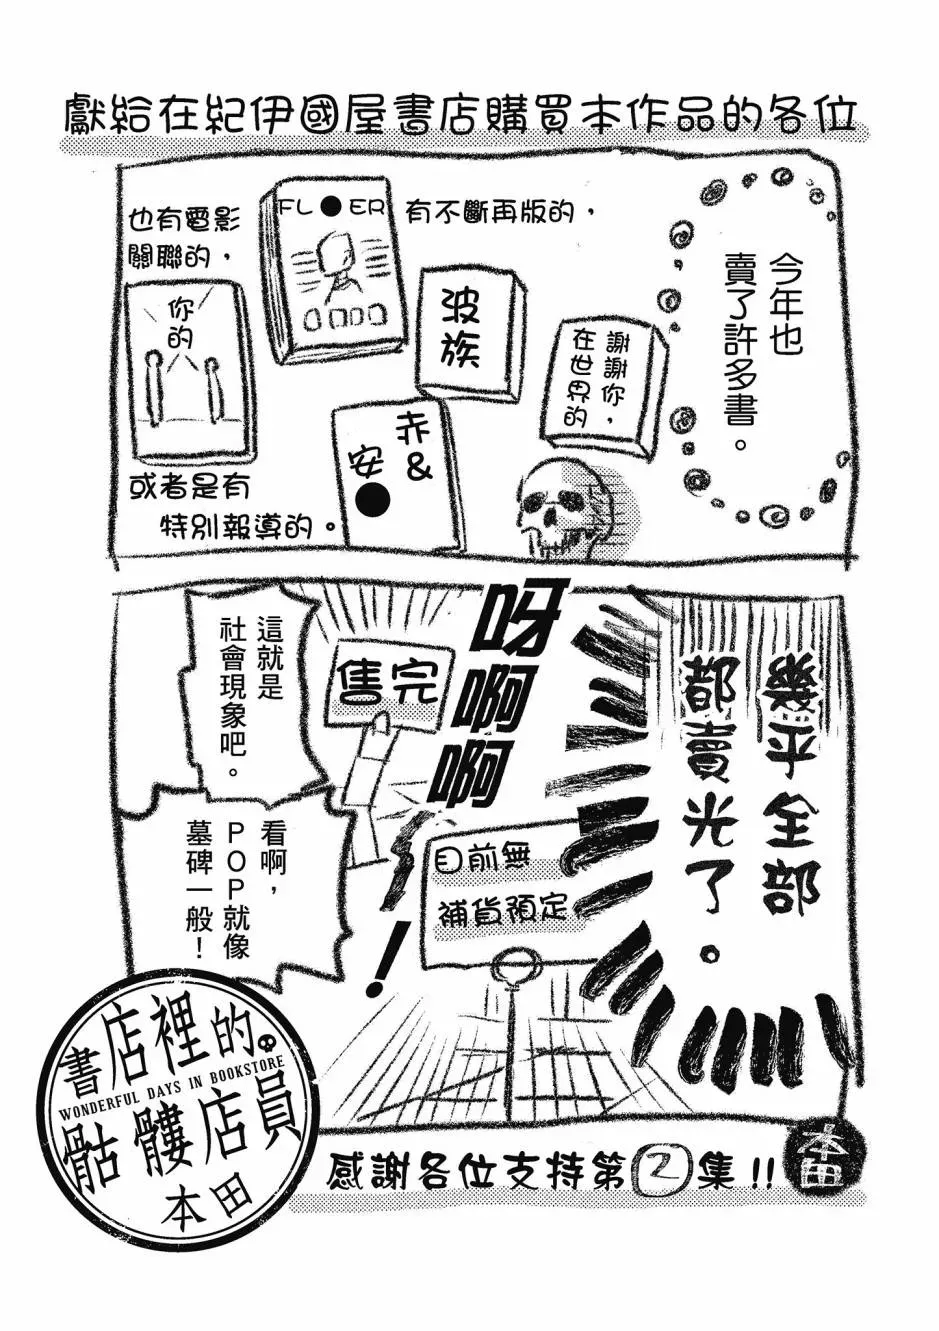 獻給在紀伊國屋書店購買本作品的各位
今年也
賣了許多書。
有不斷再版的，
FL●ER
也有電影
關聯的，
你的
波族
謝謝你，
在世界的
赤&
安●
或者是有
特別報導的。
幾乎全部
都賣光了。
呀啊啊！
售完
目前無
補貨預定
這就是
社會現象吧。
看啊，
POP就像
墓碑一般！
書店裡的
WONDERFUL DAYS IN BOOKSTORE
骷髏店員
本田
感謝各位支持第2集!!
本田